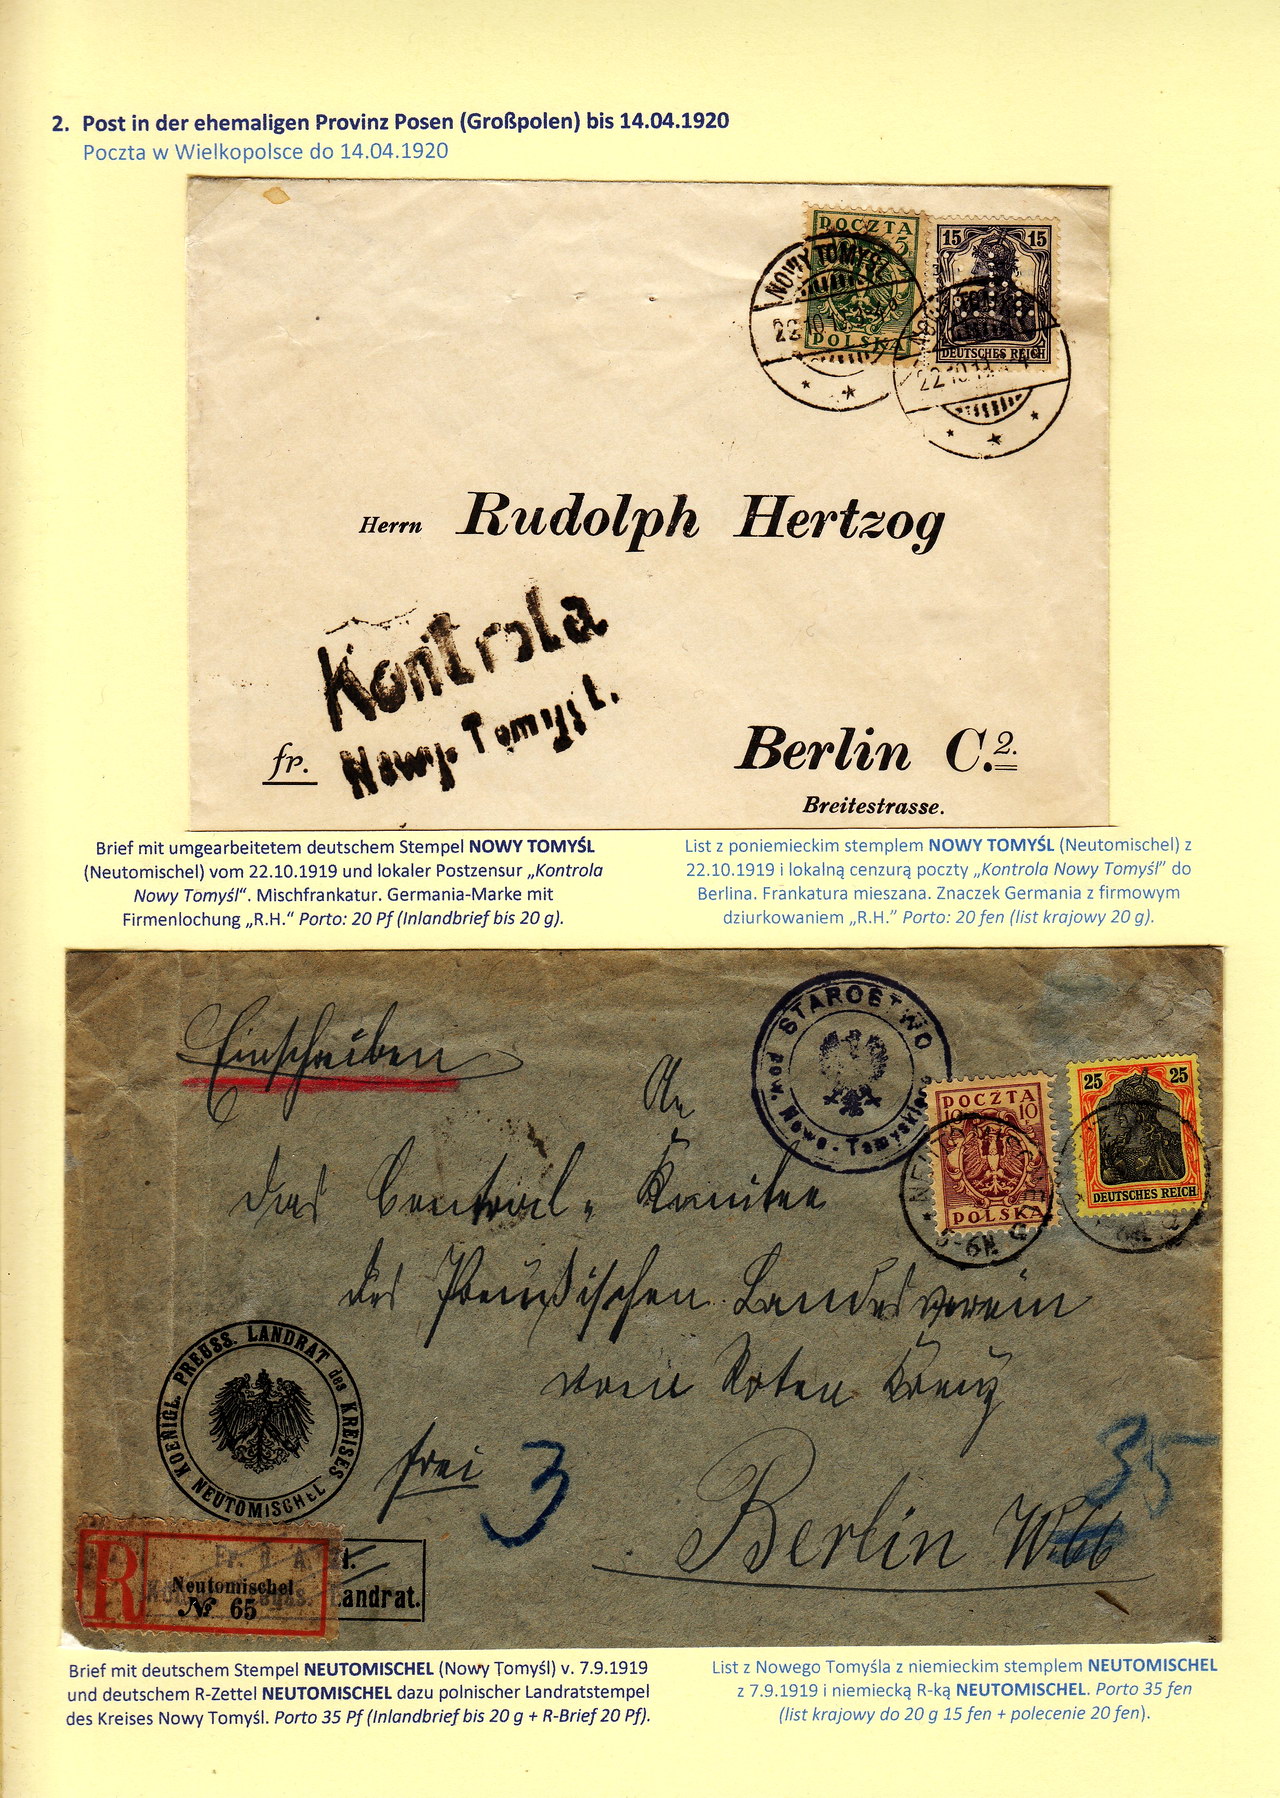 2. Post in der ehemaligen Provinz Posen (Großpolen) bis 14.04.1920
Poczta w Wielkopolsce do 14.04.1920
POCZTA
5
POLSKA
15 15
DEUTSCHES REICH
NOWY TOMYŚL
22.10.19
Herrn Rudolph Hertzog
Kontrola
Nowy. Tomyśl.
fr.
Berlin C.2.
Breitestrasse.
Brief mit umgearbeitetem deutschem Stempel NOWY TOMYŚL
(Neutomischel) vom 22.10.1919 und lokaler Postzensur „Kontrola
Nowy Tomyśl“. Mischfrankatur. Germania-Marke mit
Firmenlochung „R.H.“ Porto: 20 Pf (Inlandbrief bis 20 g).
List z poniemieckim stemplem NOWY TOMYŚL (Neutomischel) z
22.10.1919 i lokalną cenzurą poczty „Kontrola Nowy Tomyśl” do
Berlina. Frankatura mieszana. Znaczek Germania z firmowym
dziurkowaniem „R.H.” Porto: 20 fen (list krajowy 20 g).
Einschreiben
STAROSTWO
pow. Nowo-Tomyskiego
POCZTA
10 10
POLSKA
25 25
DEUTSCHES REICH
An
das Central-Komitee
des Preußischen Landesverein
vom Roten Kreuz
frei
3
35
Berlin W.66
KOENIGL. PREUSS. LANDRAT des KREISES
NEUTOMISCHEL
R
Neutomischel
№ 65
Landrat.
Brief mit deutschem Stempel NEUTOMISCHEL (Nowy Tomyśl) v. 7.9.1919
und deutschem R-Zettel NEUTOMISCHEL dazu polnischer Landratstempel
des Kreises Nowy Tomyśl. Porto 35 Pf (Inlandbrief bis 20 g + R-Brief 20 Pf).
List z Nowego Tomyśla z niemieckim stemplem NEUTOMISCHEL
z 7.9.1919 i niemiecką R-ką NEUTOMISCHEL. Porto 35 fen
(list krajowy do 20 g 15 fen + polecenie 20 fen).